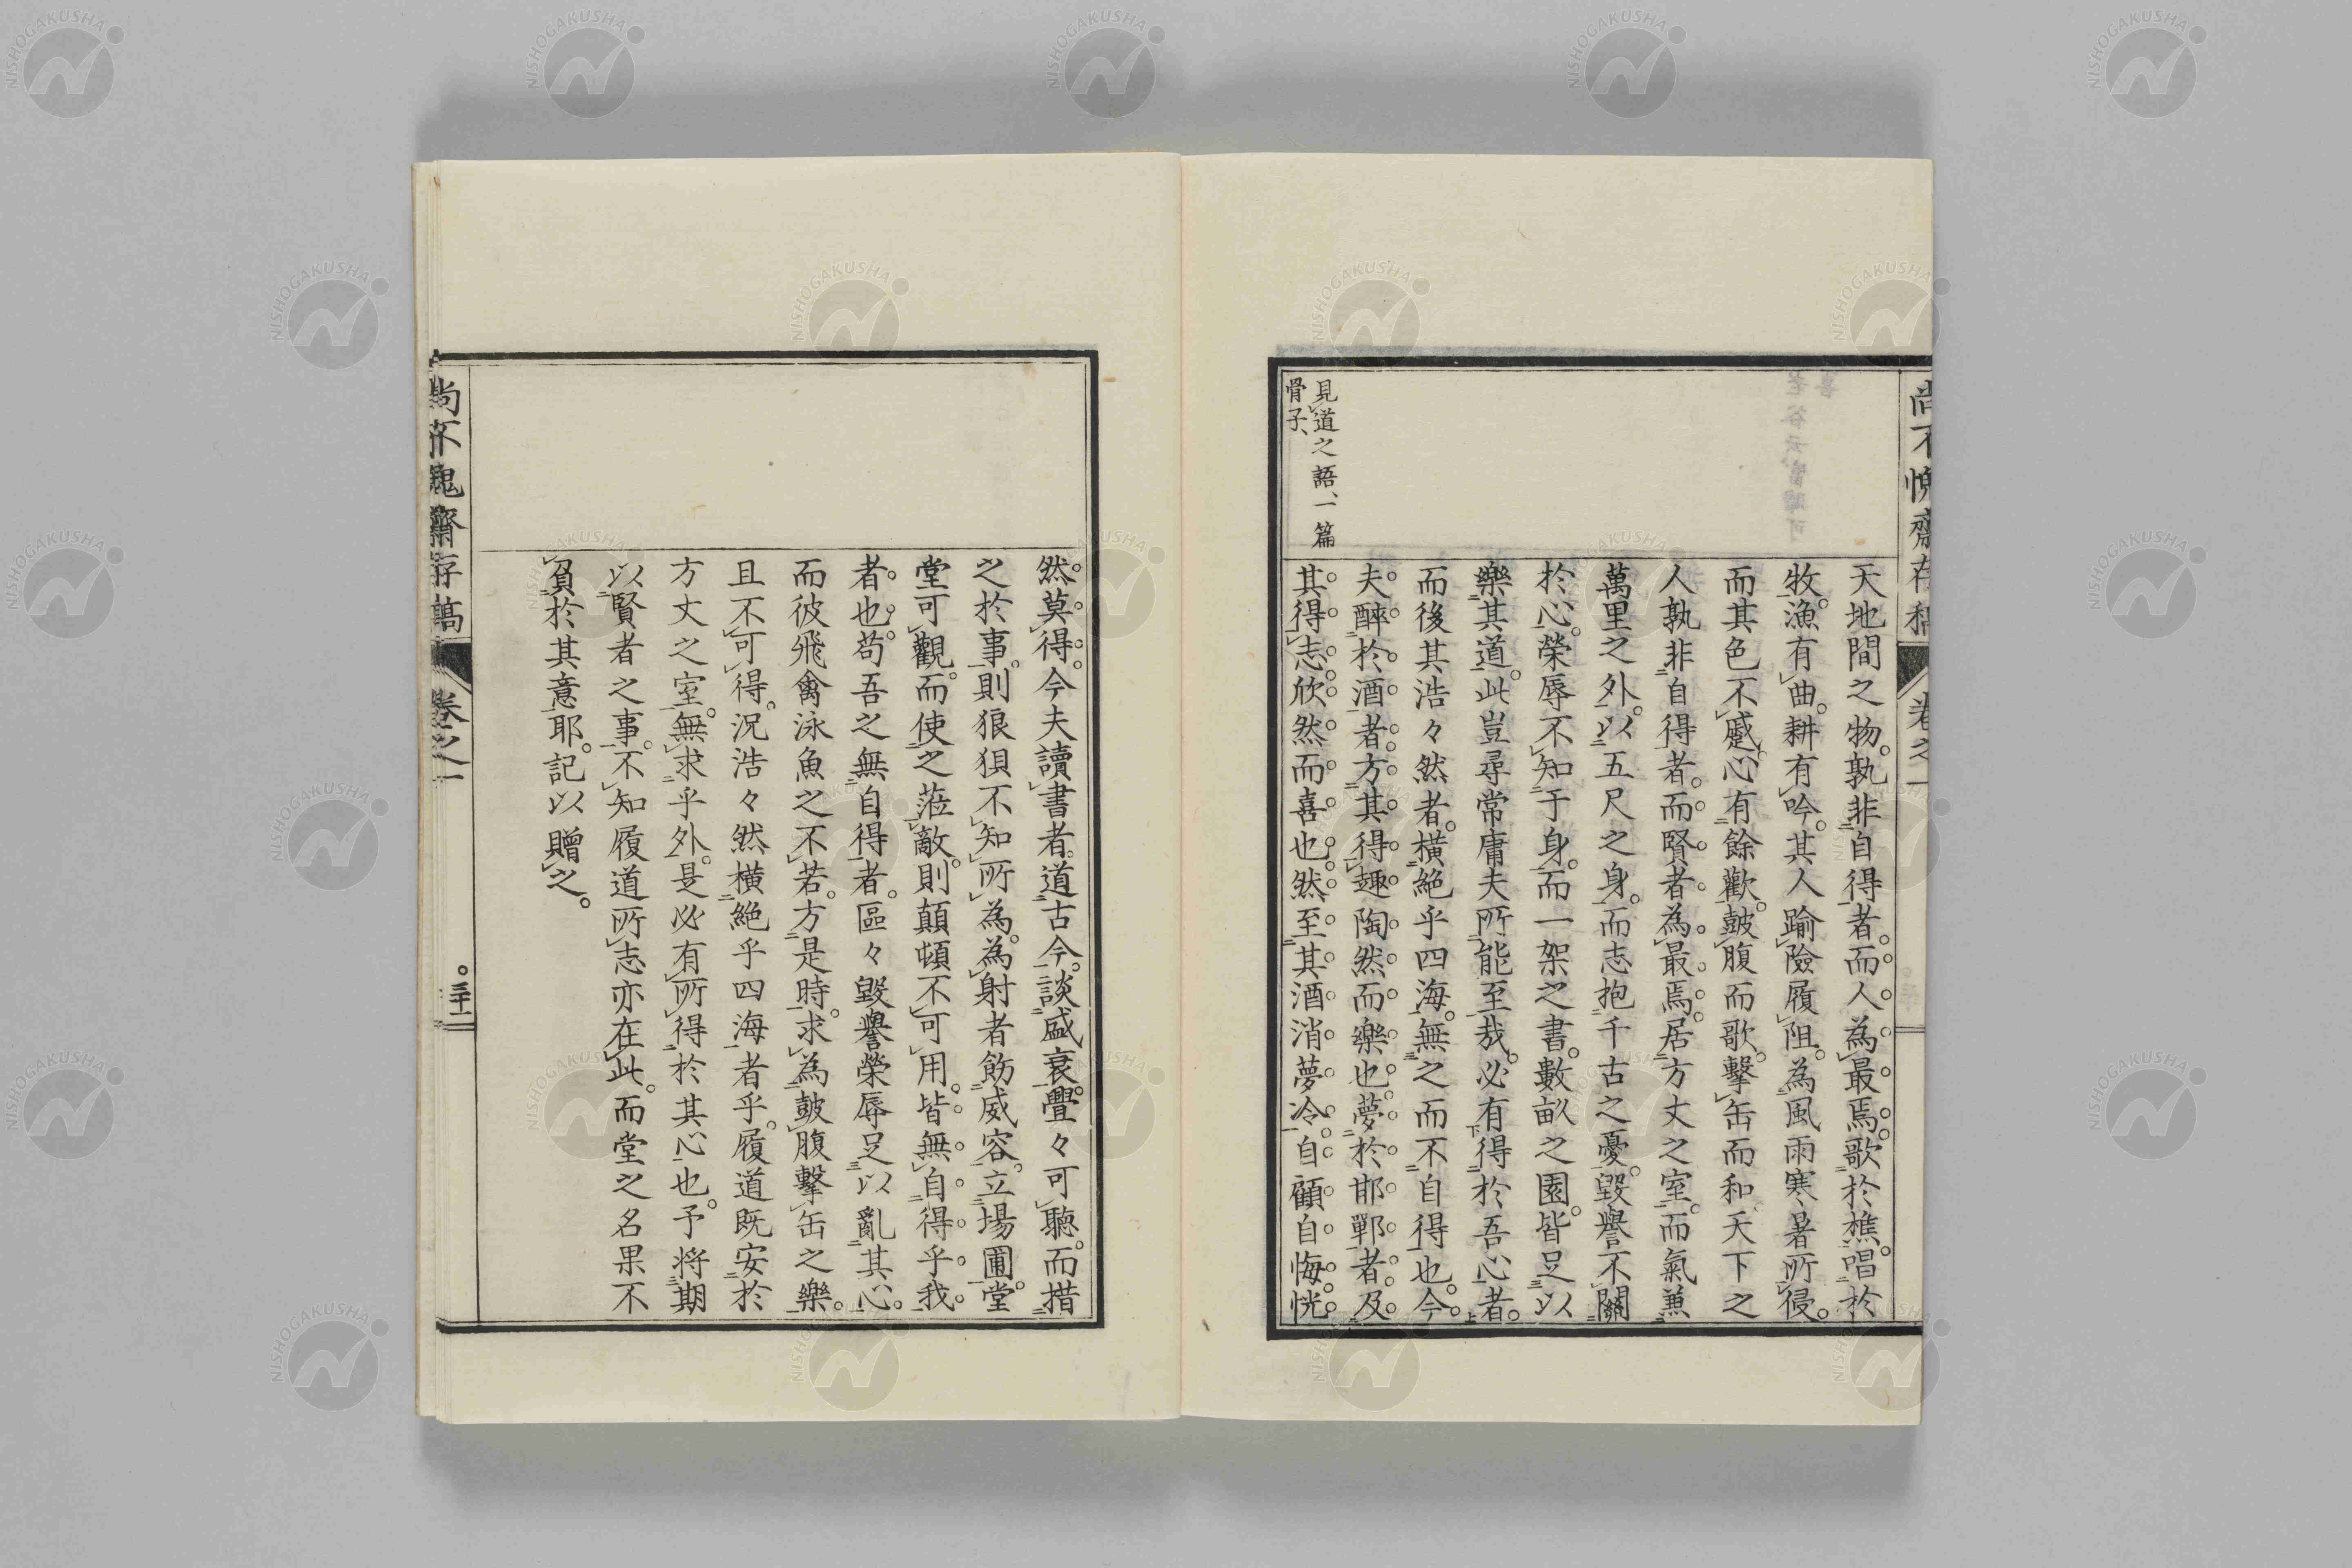 尚不愧齋存稿 卷之一
天地間之物。孰非自得者。而人為最焉。歌於樵。唱於
牧。漁有曲。耕有吟。其人踰險履阻。為風雨寒暑所侵。
而其色不慼。心有餘歡。鼓腹而歌。擊缶而和。天下之
人孰非自得者。而賢者為最焉。居方丈之室。而氣兼
萬里之外。以五尺之身。而志抱千古之憂。毀譽不關
於心。榮辱不知于身。而一架之書。數畝之園。皆足以
樂其道。此豈尋常庸夫所能至哉。必有得於吾心者。
而後其浩々然者。橫絕乎四海。無之而不自得也。今
夫醉於酒者。方其得趣陶然而樂也。夢於邯鄲者。及
其得志。欣然而喜也。然至其酒消夢冷。自顧自悔。恍
見道之語、一篇
骨子、
然莫得。今夫讀書者。道古今。談盛衰。亹々可聽。而措
之於事。則狼狽不知所為。為射者飭威容。立場圃。堂
堂可觀。而使之蒞敵。則顛頓不可用。皆無自得乎我
者也。苟吾之無自得者。區々毀譽榮辱足以亂其心。
而彼飛禽泳魚之不若。方是時。求為鼓腹擊缶之樂。
且不可得。況浩々然橫絕乎四海者乎。履道既安於
方丈之室。無求乎外。是必有所得於其心也。予將期
以賢者之事。不知履道所志亦在此。而堂之名果不
負於其意耶。記以贈之。
尚不愧齋存稿 卷之一 三十一
NISHOGAKUSHA